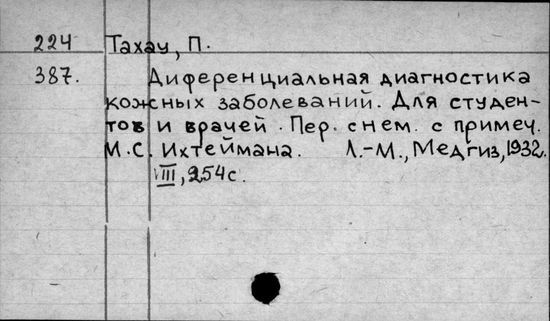 224 Тахау, П.
387. Диференциальная диагностика
кожных заболеваний. Для студен-
тов и врачей. Пер. с нем. с примеч.
М.С. Ихтеймана. Л.-М., Медгиз, 1932.
VIII, 254с.